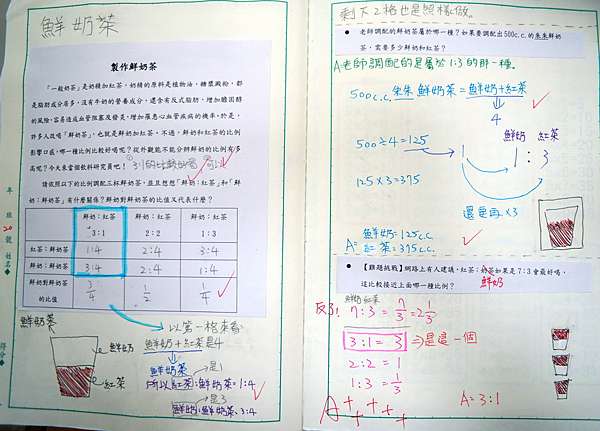 鮮奶茶
製作鮮奶茶
「一般奶茶」是奶精加紅茶,奶精的原料是植物油、糖漿澱粉,都
是脂肪成分居多,沒有牛奶的營養成分,還含有反式脂肪,增加膽固醇
的風險,容易造成血管阻塞及發炎,增加罹患心血管疾病的機率。於是,
許多人改喝「鮮奶茶」,也就是鮮奶加紅茶。不過,鮮奶和紅茶的比例
影響口感,哪一種比例比較好喝呢?從外觀能不能分辨鮮奶的比例有多
高呢?今天來當個飲料研究員吧!
請依照以下的比例調配三杯鮮奶茶,並且想想「鮮奶:紅茶」和「鮮
奶:鮮奶茶」有什麼關係?鮮奶對鮮奶茶的比值又代表什麼?
鮮奶:紅茶 鮮奶:紅茶 鮮奶:紅茶
3:1 2:2 1:3
紅茶:鮮奶茶 1:4 2:4 3:4
鮮奶:鮮奶茶 3:4 2:4 1:4
鮮奶對鮮奶茶的比值 3/4 1/2 1/4
鮮奶茶
鮮奶
紅茶
以第一格來看
鮮奶+紅茶是4
是1
所以紅茶:鮮奶茶=1:4
是3
鮮奶:鮮奶茶=3:4
年
班
20號
姓名
得分
剩下2格也是照樣做。
老師調配的鮮奶茶屬於哪一種?如果要調配出500c.c.的朱朱鮮奶
茶,需要多少鮮奶和紅茶?
A老師調配的是屬於1:3的那一種。
500c.c.朱朱鮮奶茶=鮮奶+紅茶
4
鮮奶 紅茶
500÷4=125
1 1:3
125×3=375
還要再×3
鮮奶=125c.c.
A=紅茶=375c.c.
【難題挑戰】網路上有人建議,紅茶:奶茶如果是7:3會最好喝,
鮮奶
這比較接近上面哪一種比例?
鮮奶 紅茶
反了! 7:3=7/3=2 1/3
3:1=3⇒是這一個
2:2=1
1:3=1/3
A=3:1
A++++